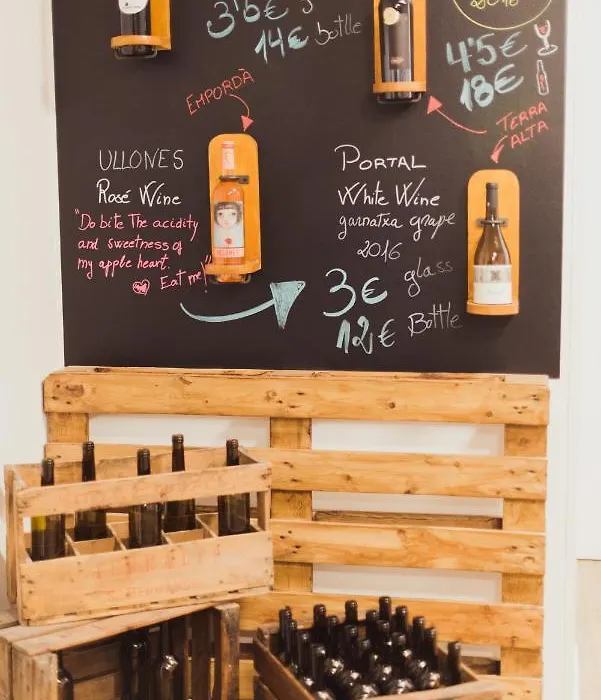 2016
3'5€
14€ bottle
4'5€
18€
EMPORDÀ
TERRA
ALTA
ULLONES
Rosé Wine
"Do bite The acidity
and sweetness of
my apple heart.
Eat me!"
PORTAL
White Wine
garnatxa grape
2016
3€ glass
12€ Bottle